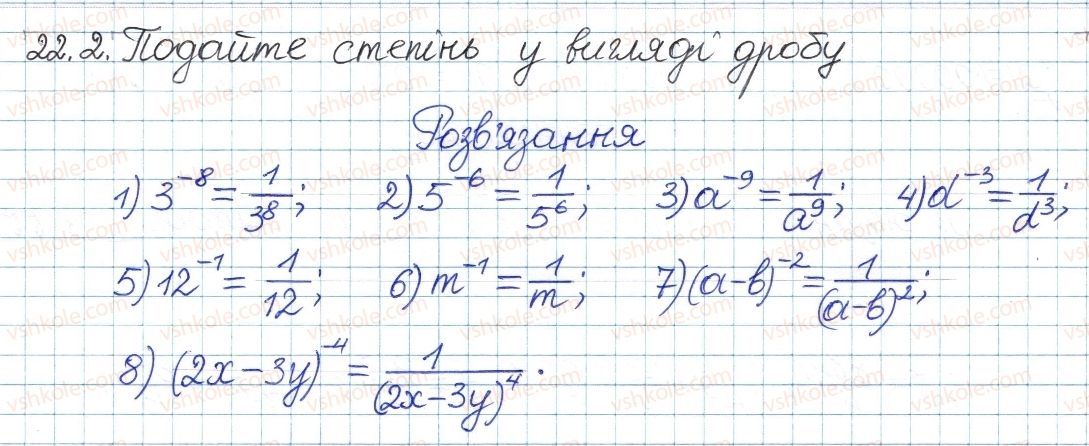 22.2. Подайте степінь у вигляді дробу
Розв'язання
1) 3^{-8} = \frac{1}{3^8}; 2) 5^{-6} = \frac{1}{5^6}; 3) a^{-9} = \frac{1}{a^9}; 4) d^{-3} = \frac{1}{d^3};
5) 12^{-1} = \frac{1}{12}; 6) m^{-1} = \frac{1}{m}; 7) (a-b)^{-2} = \frac{1}{(a-b)^2};
8) (2x-3y)^{-4} = \frac{1}{(2x-3y)^4}.
vshkole.com